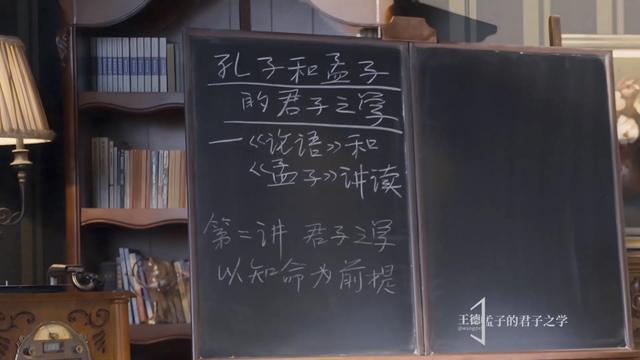 孔子和孟子
的君子之学
—《论语》和
《孟子》讲读
第二讲 君子之学
以知命为前提
王德 孟子的君子之学